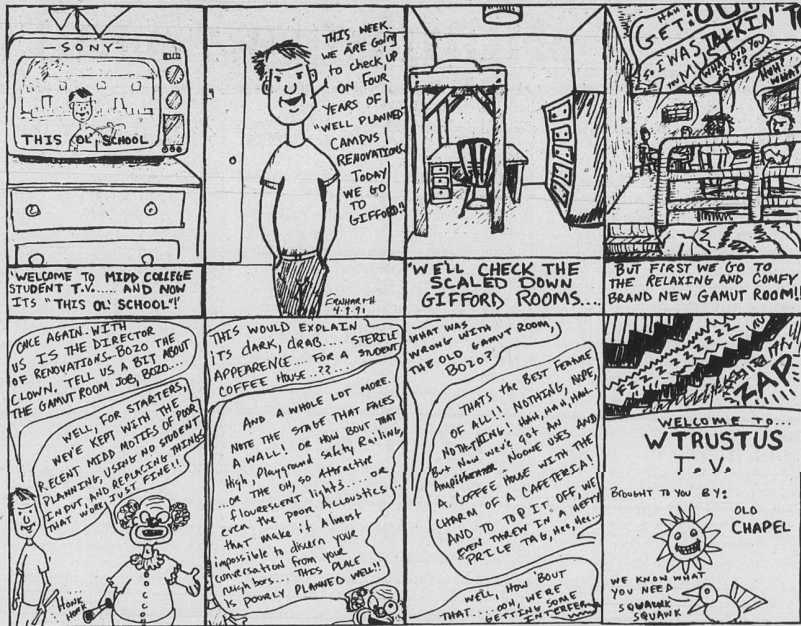 -SONY-
THIS OL' SCHOOL
"WELCOME TO MIDD COLLEGE
STUDENT T.V..... AND NOW
ITS "THIS OL' SCHOOL"!'
THIS WEEK.
WE ARE GOIN
to check up
ON FOUR
YEARS OF
"WELL PLANNED"
CAMPUS
RENOVATIONS
TODAY
WE GO
TO
GIFFORD!!
ERNHARTH
4.9.91
'WE'LL CHECK THE
SCALED DOWN
GIFFORD ROOMS....
HAH!
GET: OUT
SO I WAS TALKIN' T
MUL
WHAT DID YOU
SAY??
HUH
WHAT
BUT FIRST WE GO TO
THE RELAXING AND COMFY
BRAND NEW GAMUT ROOM!!
ONCE AGAIN. WITH
US IS THE DIRECTOR
OF RENOVATIONS- BOZO THE
CLOWN. TELL US A BIT ABOUT
THE GAMUT ROOM JOB, BOZO...
WELL, FOR STARTERS,
WE'VE KEPT WITH THE
RECENT MIDD MOTIFS OF POOR
PLANNING, USING NO STUDENT
INPUT, AND REPLACING THINGS
THAT WORK JUST FINE!!
HONK
HONK
THIS WOULD EXPLAIN
ITS DARK, DRAB.... STERILE
APPEARENCE.... FOR A STUDENT
COFFEE HOUSE..??....
AND A WHOLE LOT MORE.
NOTE THE STAGE THAT FACES
A WALL! OR HOW BOUT THAT
High, Playground Safety Railing,
...OR THE OH, SO Attractive
flourescent lights.... or
even the poor Accoustics
that make it Almost
impossible to discern your
conversation from your
neighbors... THIS PLACE
IS POORLY PLANNED WELL!!
WHAT WAS
WRONG WITH
THE OLD GAMUT ROOM,
BOZO?
THATS the BEST FEATURE
OF ALL!! NOTHING, NOPE,
NOTHING! HAH, HAH, HAH.
But Now we've got an
Ampitheater NOONE USES AND
A COFFEE HOUSE WITH THE
CHARM OF A CAFETERIA!
AND TO TOP IT OFF, WE
EVEN THREW IN A HEFTY
PRICE TAG, Hee, Hee...
WELL, HOW 'BOUT
THAT.....OOH, WE'RE
GETTING SOME
INTERFER
ZZZZZZZZZZ
ZAP
WELCOME TO...
WTRUSTUS
T.V.
BROUGHT TO YOU BY:
OLD
CHAPEL
WE KNOW WHAT
YOU NEED
SQUAWK
SQUAWK